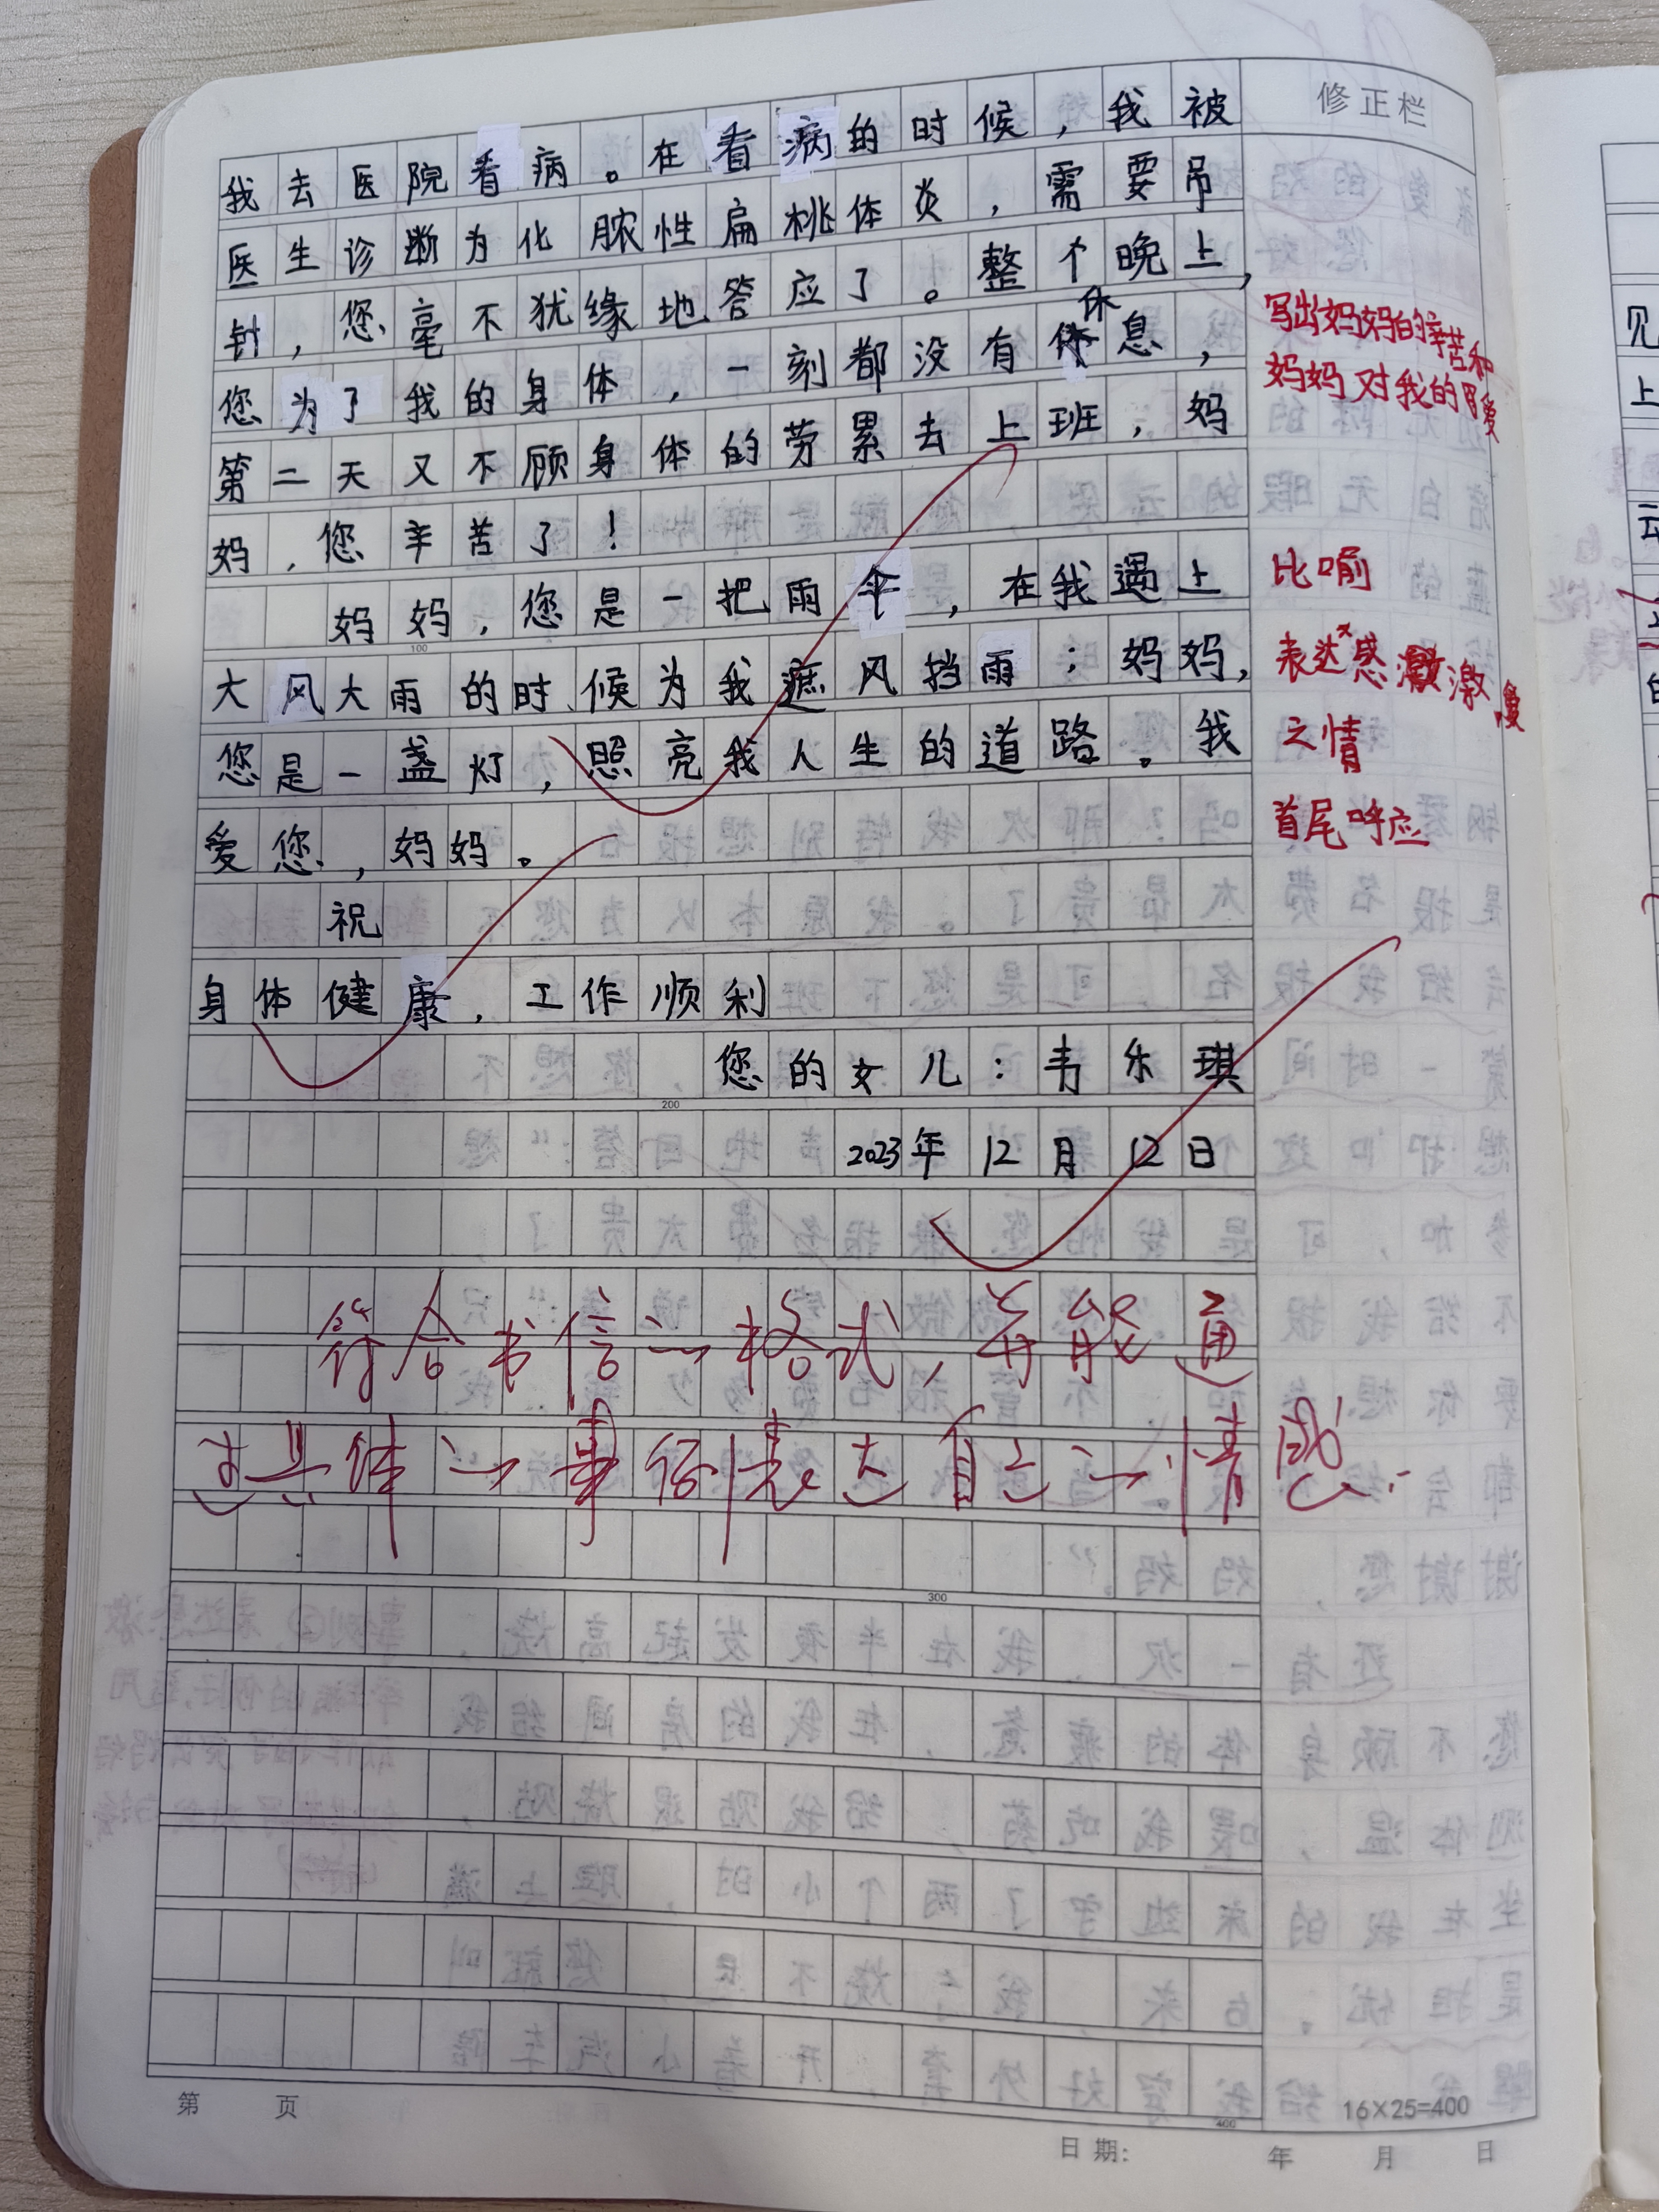 修正栏
我去医院看病。在看病的时候，我被
医生诊断为化脓性扁桃体炎，需要吊
针，您毫不犹缘地答应了。整个晚上，
休
您为了我的身体，一刻都没有体息，
第二天又不顾身体的劳累去上班，妈
妈，您辛苦了！
妈妈，您是一把雨伞，在我遇上
100
大风大雨的时候为我遮风挡雨；妈妈，
您是一盏灯，照亮我人生的道路。我
爱您，妈妈。
祝
身体健康，工作顺利
您的女儿：韦乐琪
200
2023年12月12日
写出妈妈的辛苦和
妈妈对我的爱
比喻
表达感激
之情
首尾呼应
符合书信的格式，并能通
过具体的事例表达自己的情感。
300
400
第 页
16×25=400
日期： 年 月 日
见
上